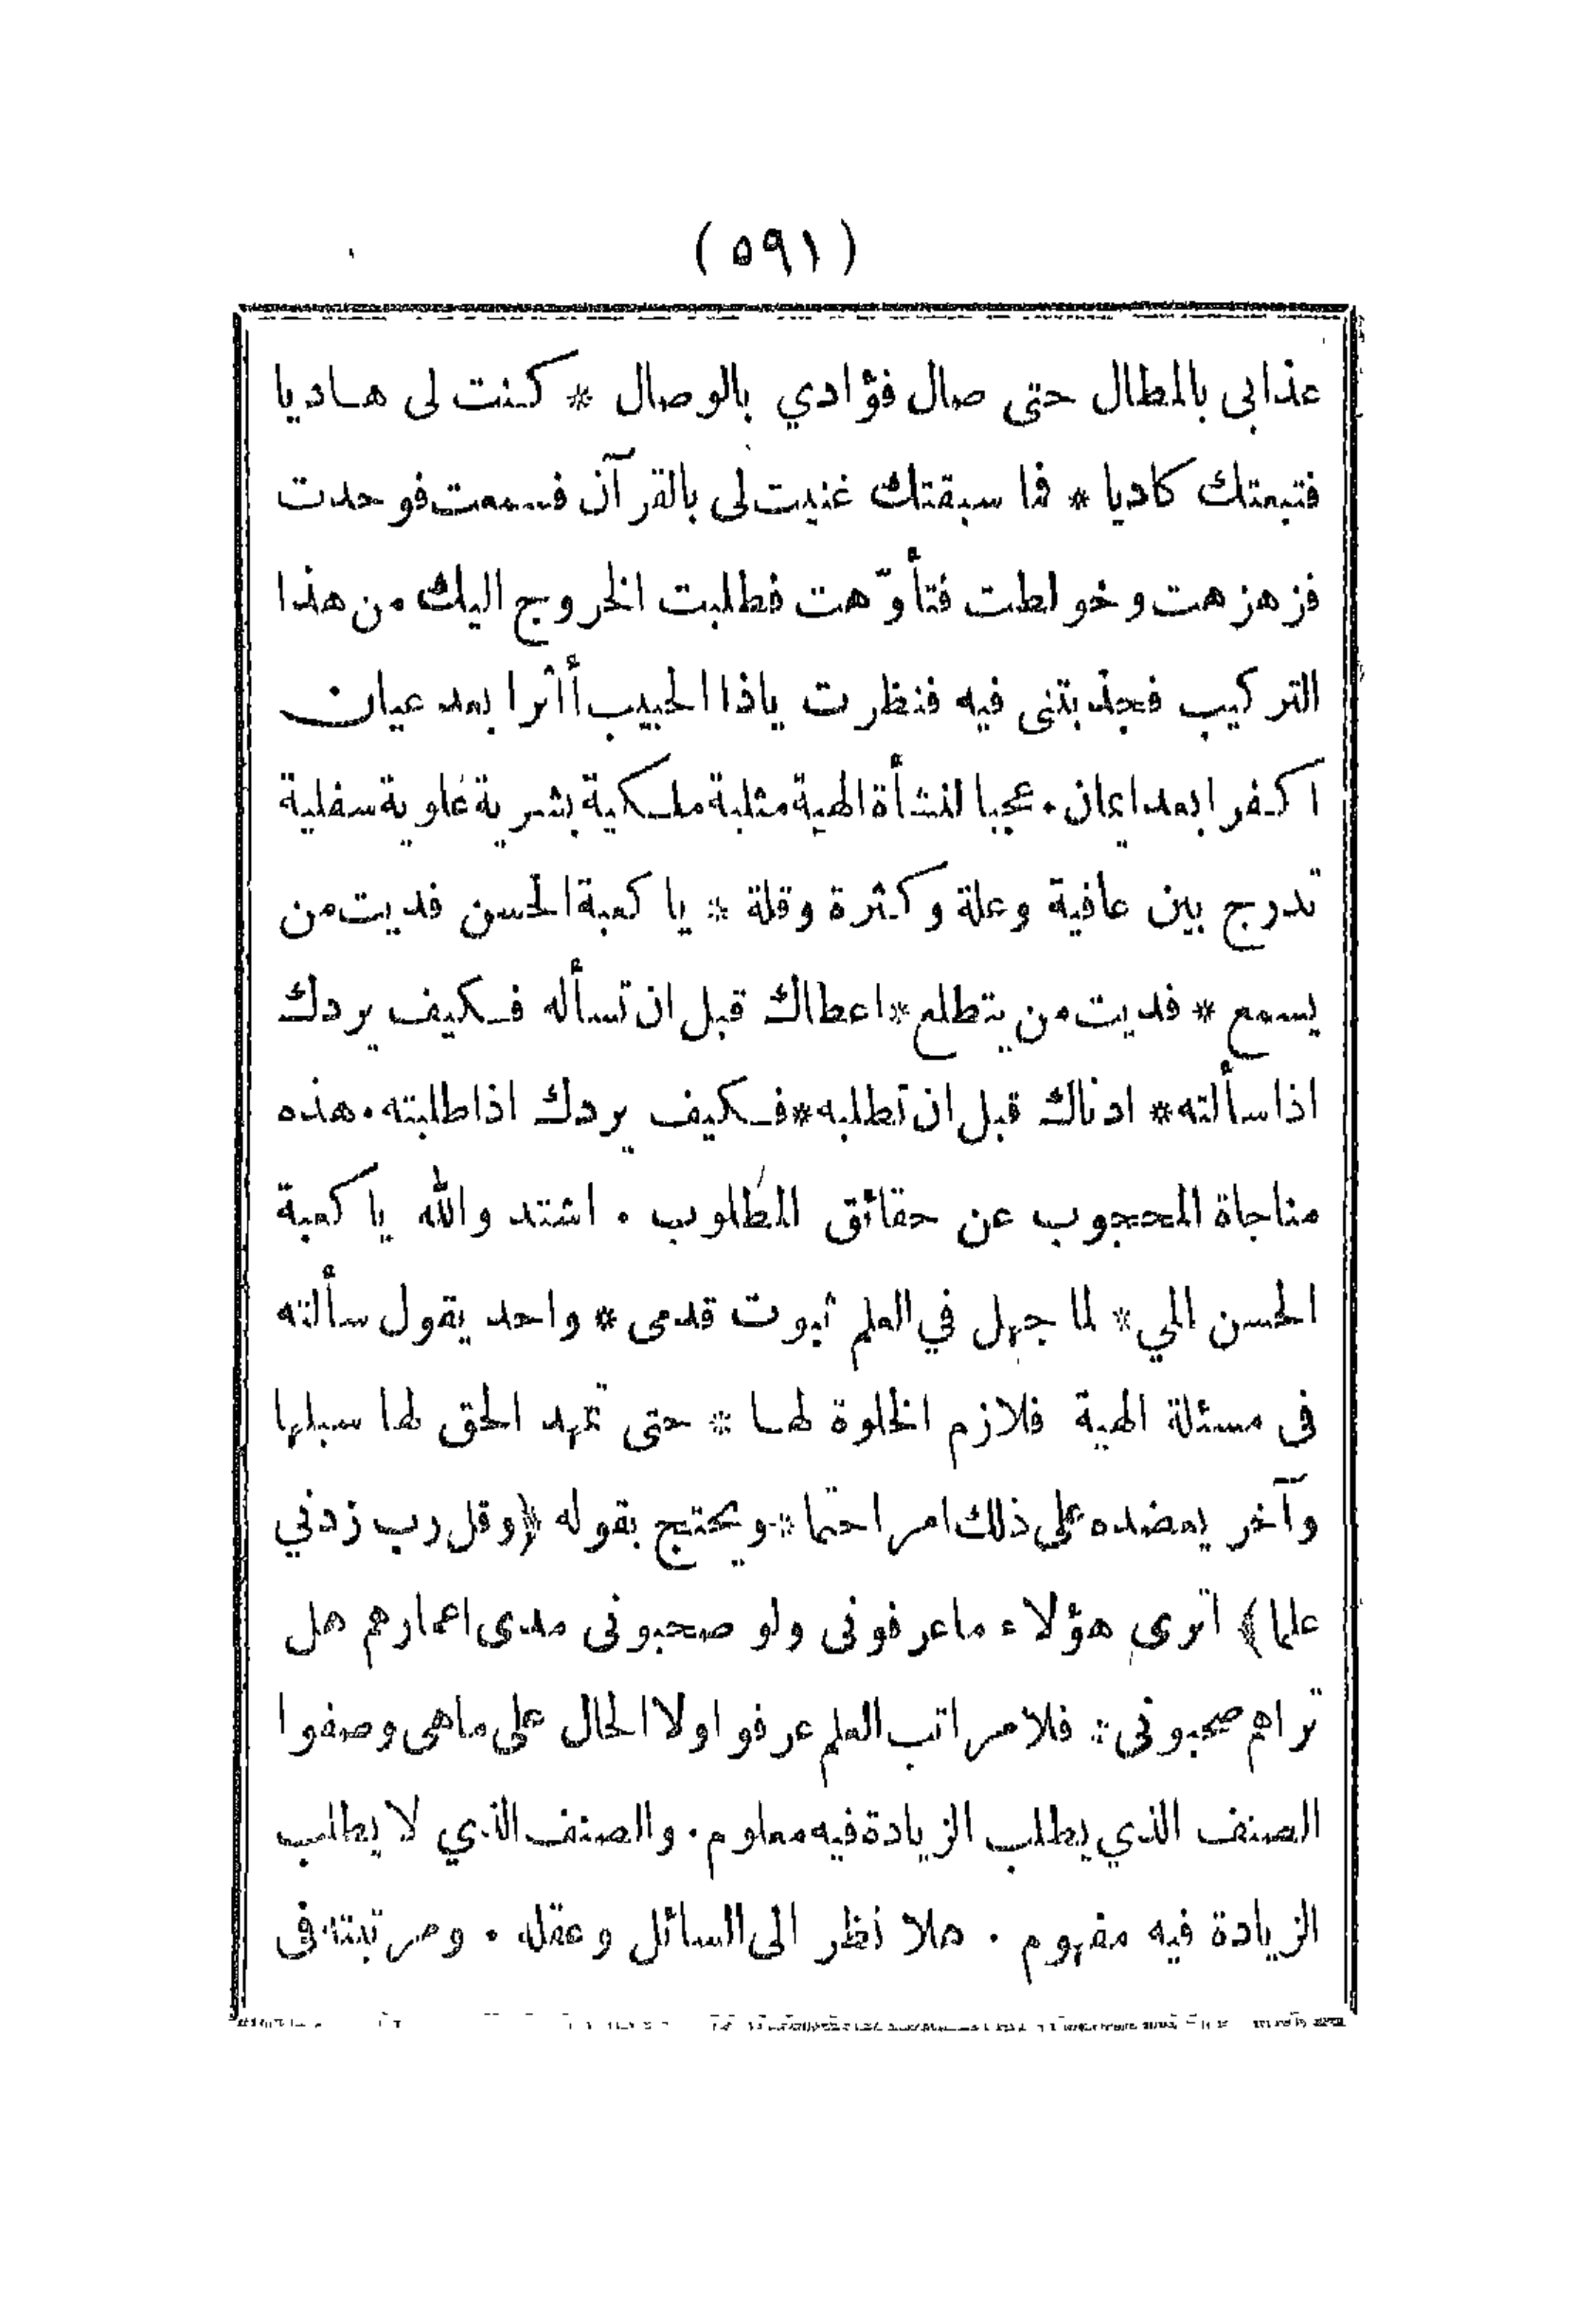 (٥٩١)
عذابى بالمطال حتى صال فؤادي بالوصال * كنت لى هاديا
فتبعتك كاديا * فما سبقتك غنيت لى بالقرآن فسمعت فوحدت
فزهزهت وخولطت فتأوّهت فطلبت الخروج اليك من هذا
التركيب فجذبتنى فيه فنظرت ياذا الحبيب أأثرا بعد عيان
اكفرا بعد ايمان . عجبا لنشأة الهية مثلية ملكية بشرية علوية سفلية
تدرج بين عافية وعلة وكثرة وقلة * يا كعبة الحسن فديت من
يسمع * فديت من يتطلع * اعطاك قبل ان تسأله فكيف يردك
اذا سألته * ادناك قبل ان تطلبه * فكيف يردك اذا طلبته . هذه
مناجاة المحجوب عن حقائق المطلوب . اشتد والله يا كعبة
الحسن المي * لما جهل في العلم ثبوت قدمى * واحد يقول سألته
فى مسئلة الهية فلازم الخلوة لها * حتى تمهد الحق لها سبلها
وآخر يعضده على ذلك امرا حتما * ويحتج بقوله ﴿وقل رب زدني
علما﴾ اترى هؤلاء ما عرفونى ولو صحبونى مدى اعمارهم هل
تراهم صحبونى * فلا مراتب العلم عرفوا ولا الحال على ماهى وصفوا
الصنف الذي يطلب الزيادة فيه معلوم . والصنف الذي لا يطلب
الزيادة فيه مفهوم . هلا نظر الى السائل وعقله . ومرتبته فى